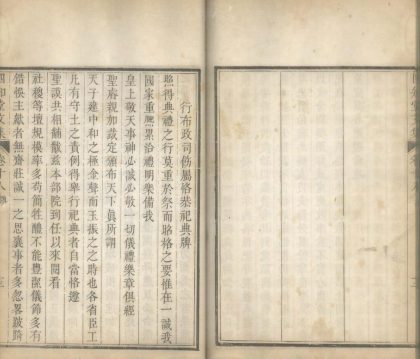 行布政司飭屬恪恭祀典牌
照得典禮之行莫重於祭而昭格之要惟在一誠我
國家重熙累洽禮明樂備我
皇上敬天事神必誠必敬一切儀禮樂章俱經
聖睿親加裁定頒布天下眞所謂
天子建中和之極金聲而玉振之之時也各省臣工
凡有守土之責例得舉行祀典者自當恪遵
聖謨共相黼黻茲本部院到任以來閱看
社稷等壇規模率多苟簡牲醴不能豐潔儀節多有
錯悞主獻者無齋莊誠一之思襄事者多忽畧跛踦
卷十八